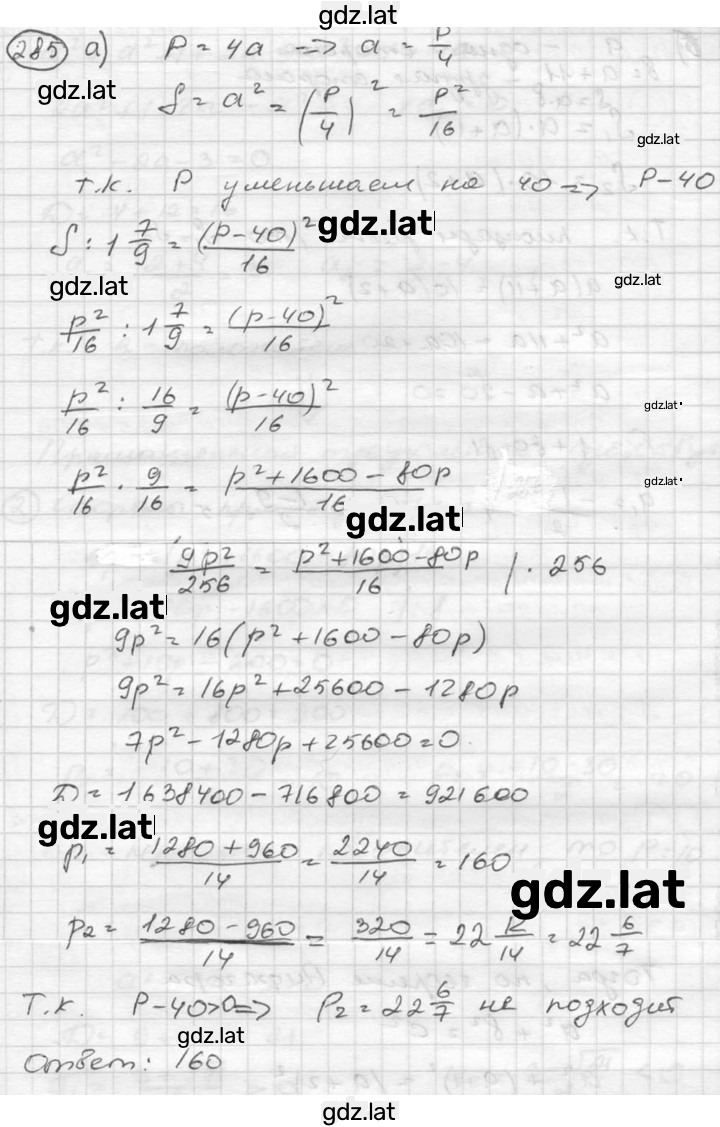 gdz.lat
285 а) P = 4a => a = P/4
gdz.lat
S = a² = (P/4)² = P²/16
gdz.lat
Т.к. P уменьшаем на 40 => P-40
S : 1 7/9 = (P-40)²/16 gdz.lat
gdz.lat gdz.lat
p²/16 : 1 7/9 = (p-40)²/16
p²/16 : 16/9 = (p-40)²/16 gdz.lat
p²/16 · 9/16 = p²+1600-80p/16 gdz.lat
gdz.lat
9p²/256 = p²+1600-80p/16 | · 256
gdz.lat
9p² = 16(p²+1600-80p)
9p² = 16p²+25600-1280p
7p²-1280p+25600=0
D = 1638400-716800 = 921600
gdz.lat
p₁ = 1280+960/14 = 2240/14 = 160
gdz.lat
p₂ = 1280-960/14 = 320/14 = 22 12/14 = 22 6/7
Т.к. P-40>0 => P₂ = 22 6/7 не подходит
gdz.lat
Ответ: 160
gdz.lat